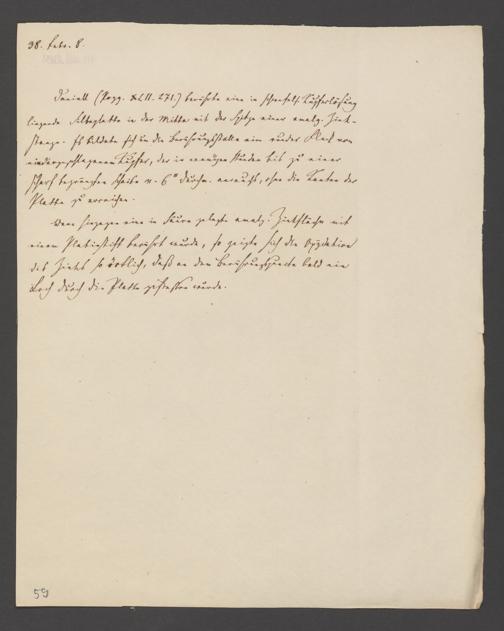 38. Febr. 8.
Daniell (Pogg. XLII. 271.) berührte eine in schwefels. Kupferlösung
liegende Silberplatte in der Mitte mit der Spitze einer amalg. Zink-
stange. Es bildete sich um die Berührungsstelle ein runder Fleck von
niedergeschlagenem Kupfer, der in wenigen Stunden bis zu einer
scharf begrenzten Scheibe v. 6" Durchm. anwuchs, ohne die Kanten der
Platte zu erreichen.
Wenn hingegen eine in Säure gelegte amalg. Zinkfläche mit
einem Platinstift berührt wurde, so zeigte sich die Oxydation
des Zinks so örtlich, daß an dem Berührungspuncte bald ein
Loch durch die Platte gefressen wurde.
59